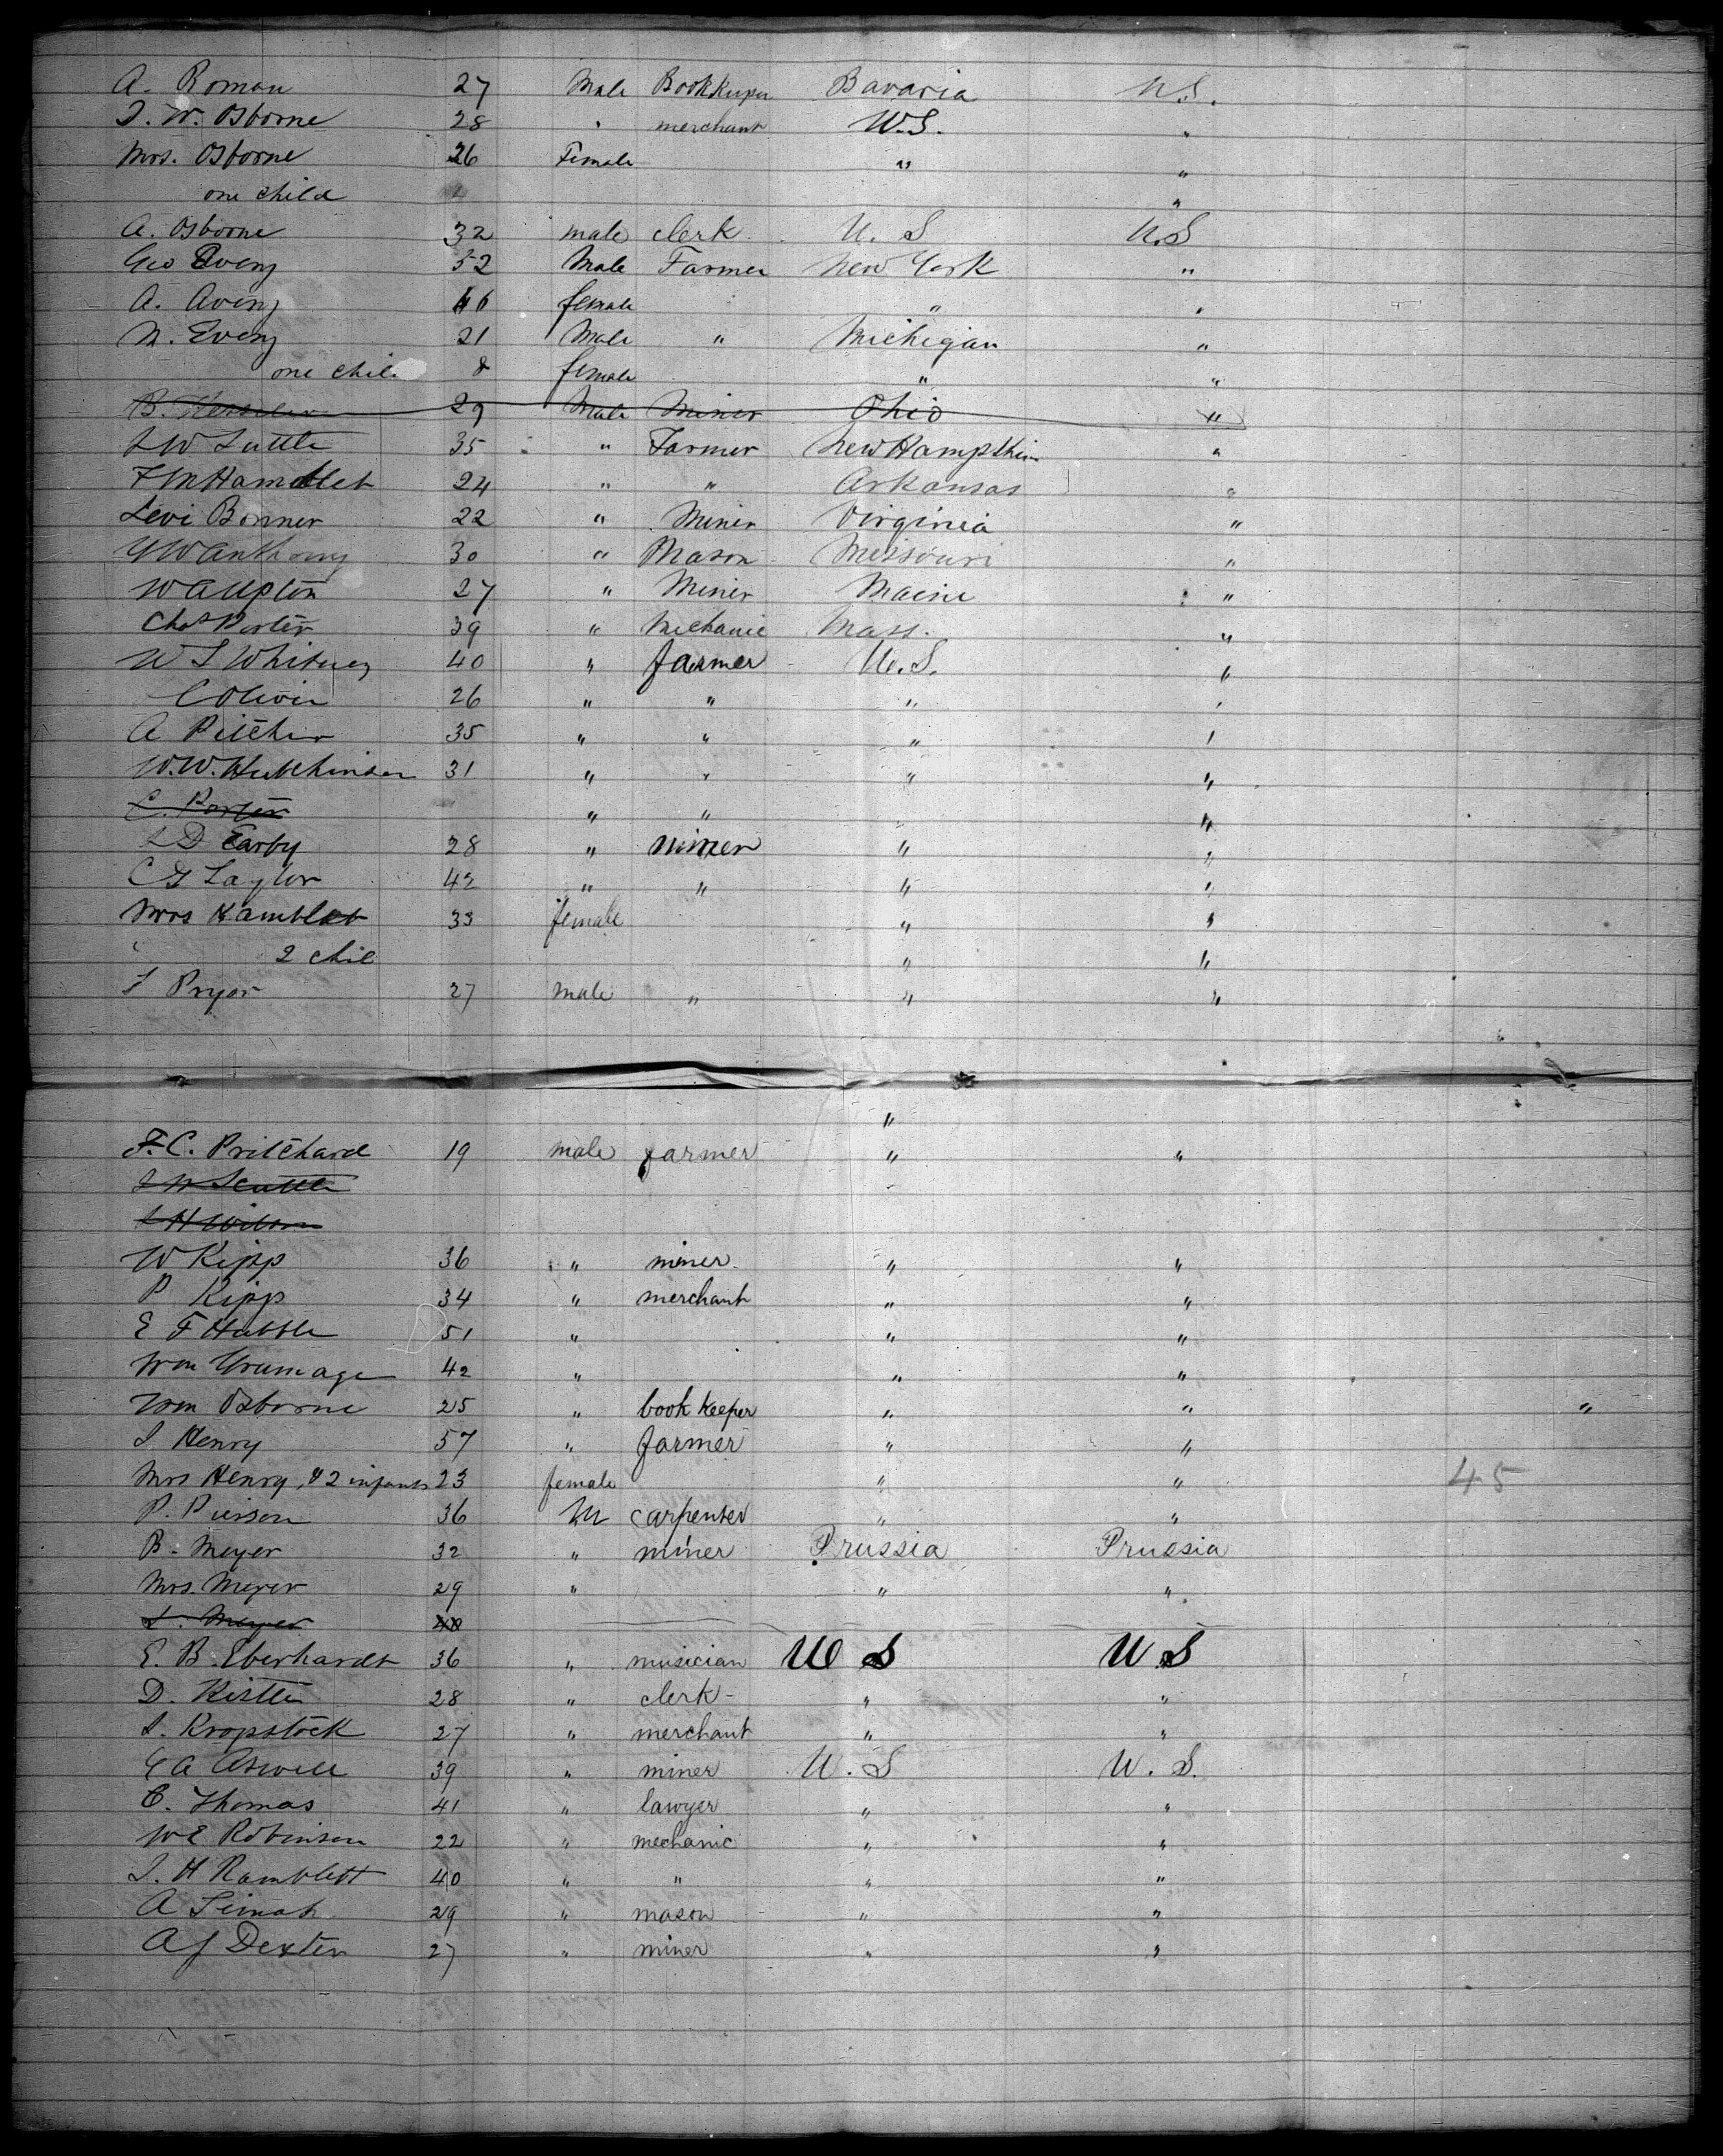 A. Roman 27 Male Bookkeeper Bavaria U.S.
J. W. Osborne 28 " merchant U.S. "
Mrs. Osborne 26 Female " "
one child "
A. Osborne 32 male clerk U.S U.S
Geo Every 52 Male Farmer New York "
A. Avery 46 female " "
N. Every 21 Male " Michigan "
one chil 8 female " "
B. 29 Male Miner Ohio "
S W Tuttle 35 " Farmer New Hampshire "
F M Hamblet 24 " " Arkansas "
Levi Bonner 22 " Miner Virginia "
Y W Anthony 30 " Mason Missouri "
W A Upton 27 " Miner Maine "
Chas Porter 39 " Mechanic Mass. "
W S Whitney 40 " farmer U.S. "
C Oliver 26 " " " "
A Pitcher 35 " " " "
W. W. Hutchinson 31 " " " "
C. Porter " " "
S D Earby 28 " miner " "
C G Taylor 42 " " " "
Mrs Hamblet 33 female " "
2 chil " "
J Pryor 27 male " " "
"
F. C. Pritchard 19 male farmer " "
J W Scuttle
S H Wilson
W Kipp 36 " miner " "
P Kipp 34 " merchant " "
E F Hubble 51 " " "
Wm Gramage 42 " " "
Wm Osborne 25 " book keeper " " "
J Henry 57 " farmer " "
Mrs Henry, & 2 infants 23 female " " 45
P. Pierson 36 M carpenter " "
B. Meyer 32 " miner Prussia Prussia
Mrs. Meyer 29 " " "
L. Meyer 40
E. B. Eberhardt 36 " musician U S U S
D. Kistte 28 " clerk " "
S. Kropstock 27 " merchant " "
G A Aswell 39 " miner U. S U. S.
C. Thomas 41 " lawyer " "
W E Robinson 22 " mechanic " "
J. H Ramblett 40 " " " "
A Simah 29 " mason " "
A J Dexter 27 " miner " "